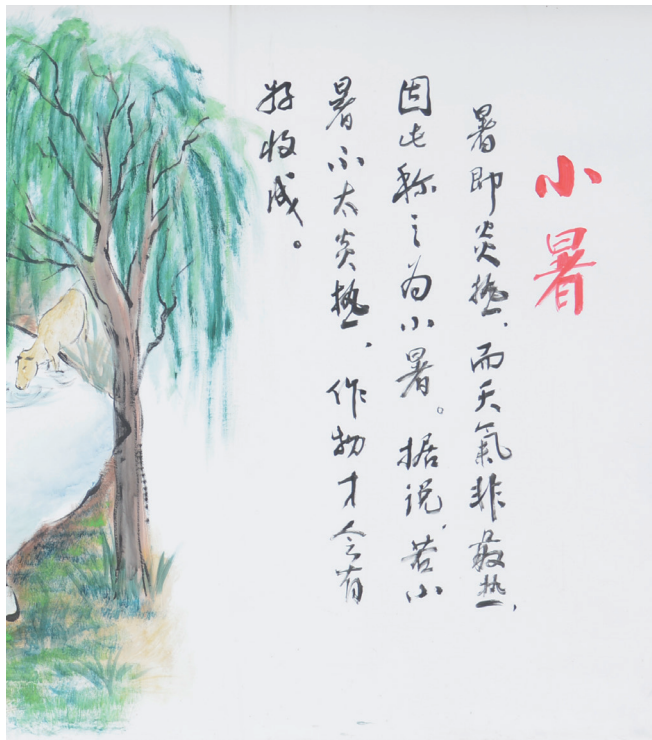 小暑
暑即炎热、而天氣非最热,
因此称之为小暑。据说、若小
暑不太炎热、作物才会有
好收成。